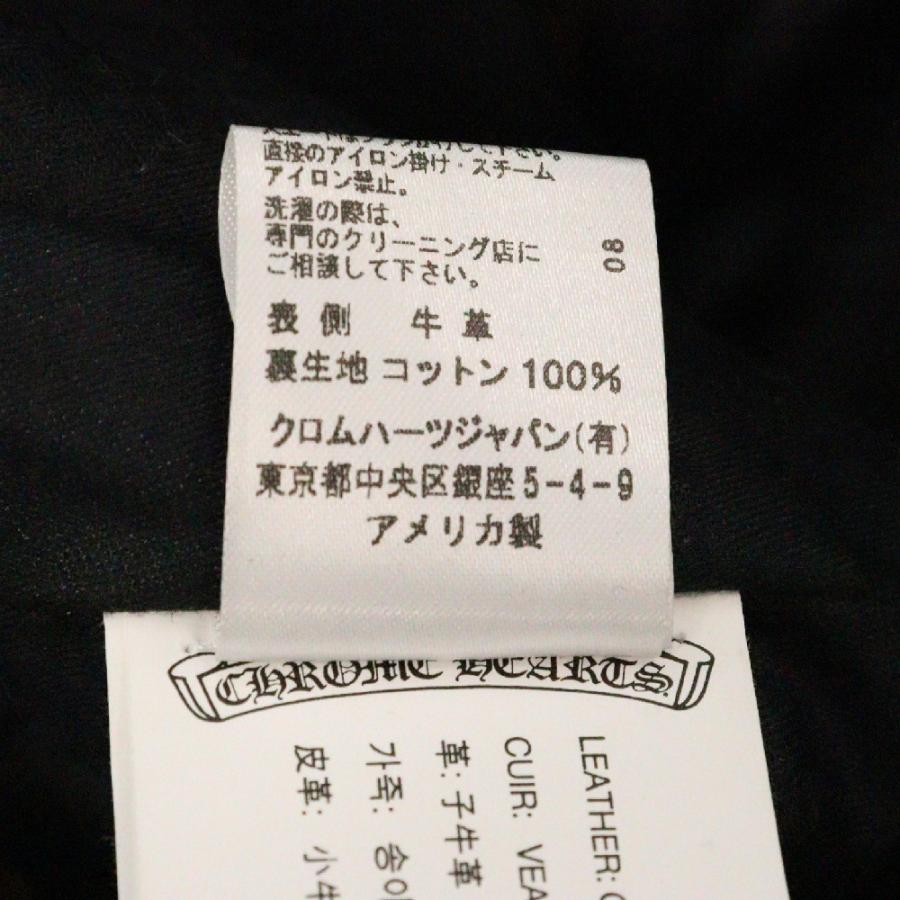 直接のアイロン掛け・スチーム
アイロン禁止。
洗濯の際は、
専門のクリーニング店に
ご相談して下さい。
08
表側 牛革
裏生地 コットン 100%
クロムハーツジャパン(有)
東京都中央区銀座5-4-9
アメリカ製
CHROME HEARTS
LEATHER:
CUIR:
革: 子牛革
가죽:
皮革: